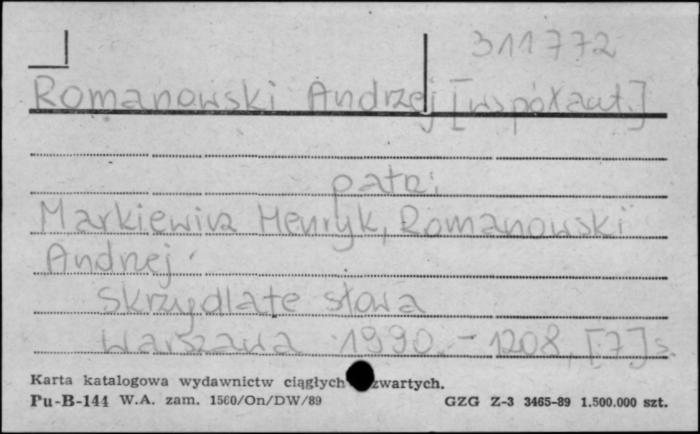 311772
Romanowski Andrzej [współaut.]
patrz:
Markiewicz Henryk, Romanowski
Andrzej
Skrzydlate słowa
Warszawa 1990. - 1208, [7] s.
Karta katalogowa wydawnictw ciągłych zwartych.
Pu-B-144 W.A. zam. 1560/On/DW/89 GZG Z-3 3465-89 1.500.000 szt.